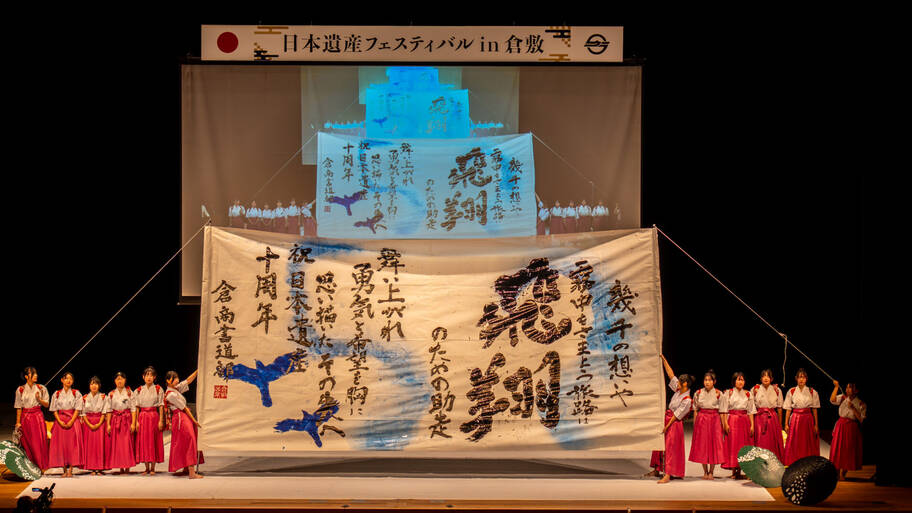 日本遺産フェスティバル in 倉敷
幾千の想いや
霧中をゆく旅路は
飛翔
のための助走
舞い上がれ
勇気と希望を胸に
思い描いたその先へ
祝日本遺産
十周年
倉商書道部